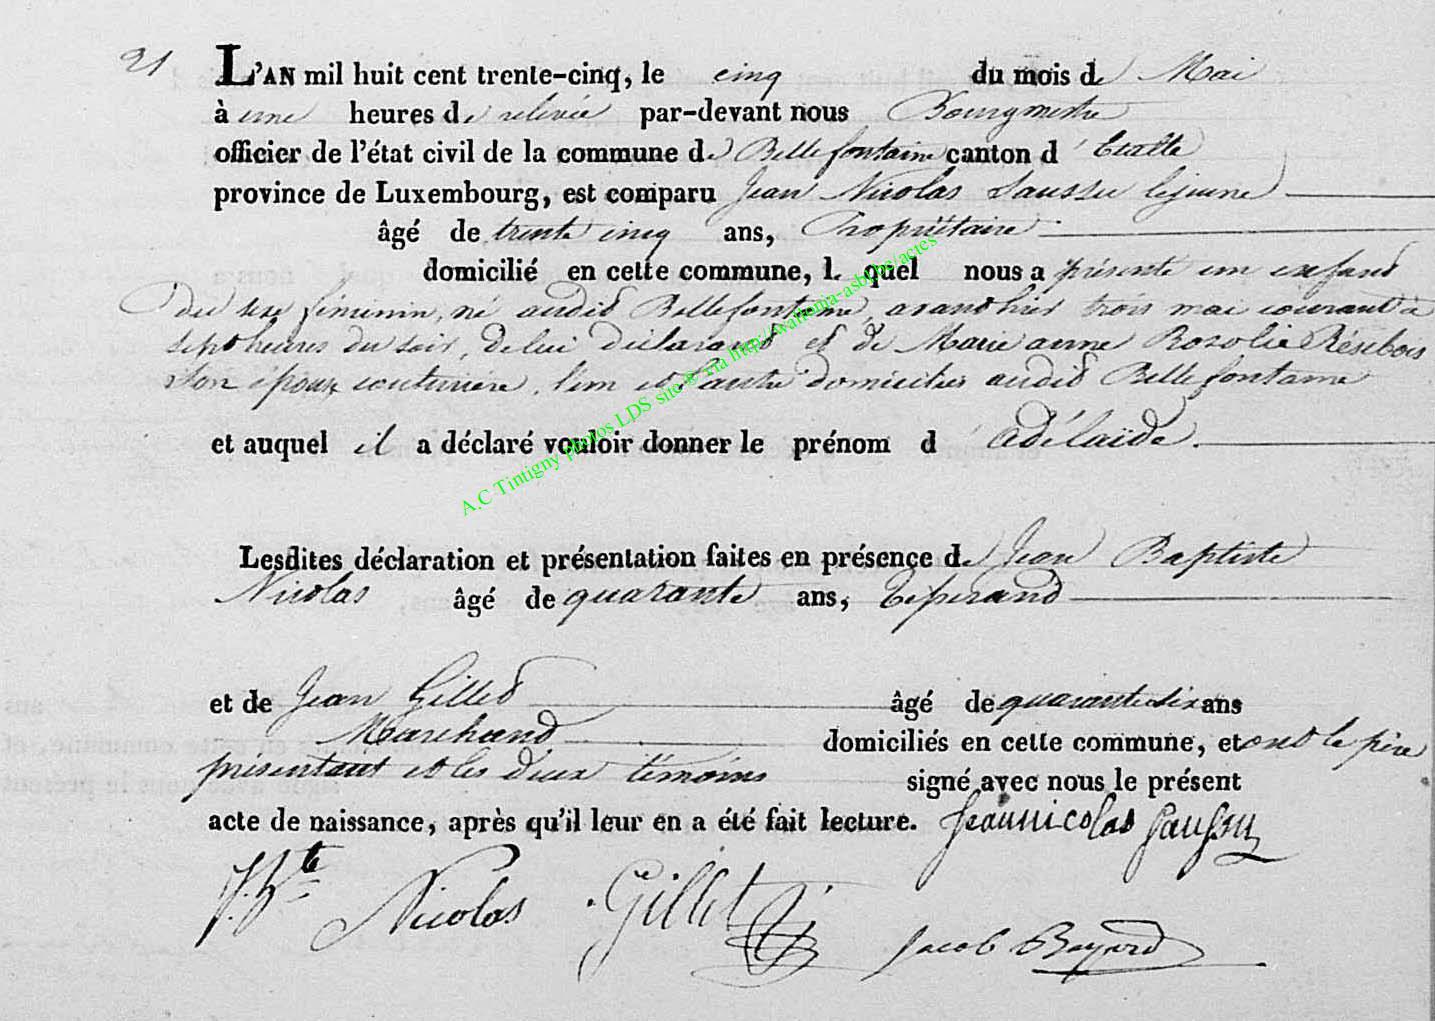 21 L'AN mil huit cent trente-cinq, le cinq du mois de Mai
à une heures de relevée par-devant nous Bourgmestre
officier de l'état civil de la commune de Bellefontaine canton d'Etalle
province de Luxembourg, est comparu Jean Nicolas Saussu lejeune
âgé de trente cinq ans, Propriétaire
domicilié en cette commune, l quel nous a présenté un enfand
du sexe féminin, né audid Bellefontaine, avandhier trois mai courant à
sept heures du soir, de lui déclarand et de Marie anne Rosolie Résibois
son épouse couturière, l'un et l'autre domiciliés audid Bellefontaine
et auquel il a déclaré vouloir donner le prénom d'Adélaïde.
A.C Tintigny photos LDS site © via http://wallonia-asbl.be/actes
Lesdites déclaration et présentation faites en présence de Jean Baptiste
Nicolas âgé de quarante ans, Tisserand
et de Jean Gilled âgé de quarante six ans
Marchand domiciliés en cette commune, et ont le père
présentant et les deux témoins signé avec nous le présent
acte de naissance, après qu'il leur en a été fait lecture. Jeannicolas Saussu
J. Bte Nicolas Gillet
Jacob Bayard